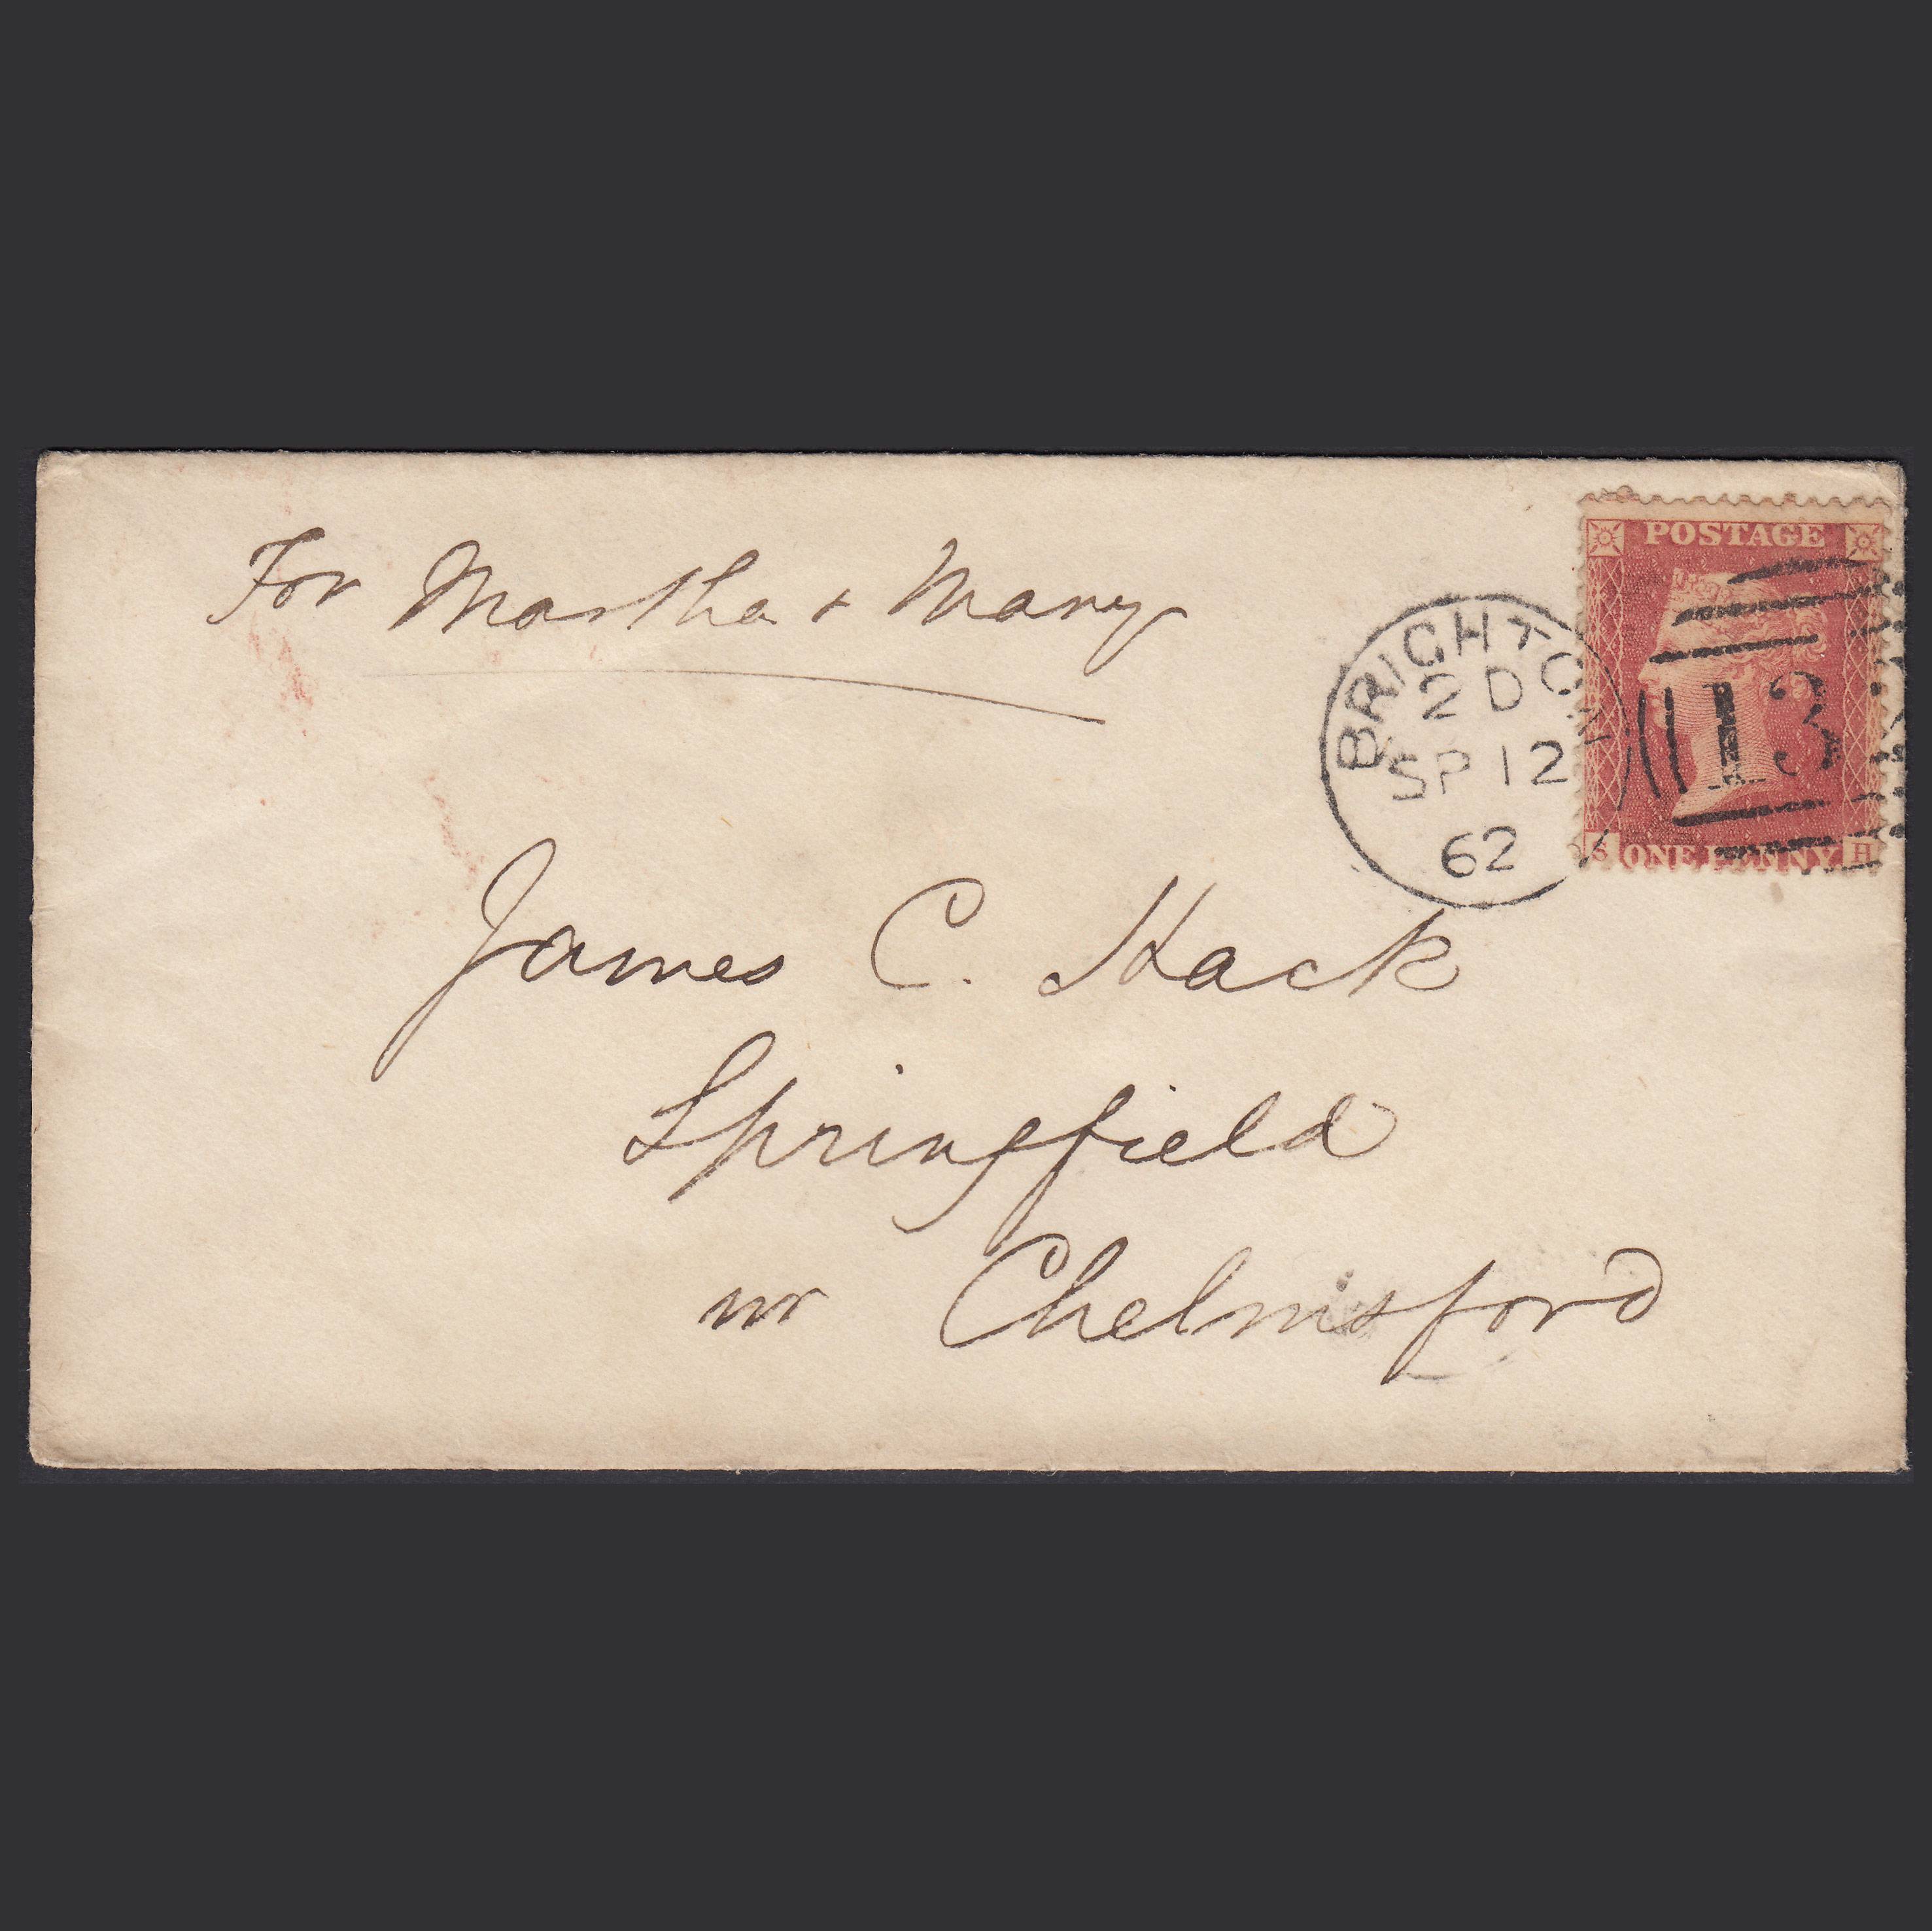 For Martha + Mary
POSTAGE
BRIGHTON
2 D
SP 12
62
13
S ONE PENNY H
James C. Hack
Springfield
nr Chelmsford